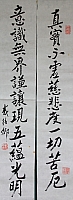 真實不虛慈悲度一切苦厄
意識無界謹讓現五蘊光明